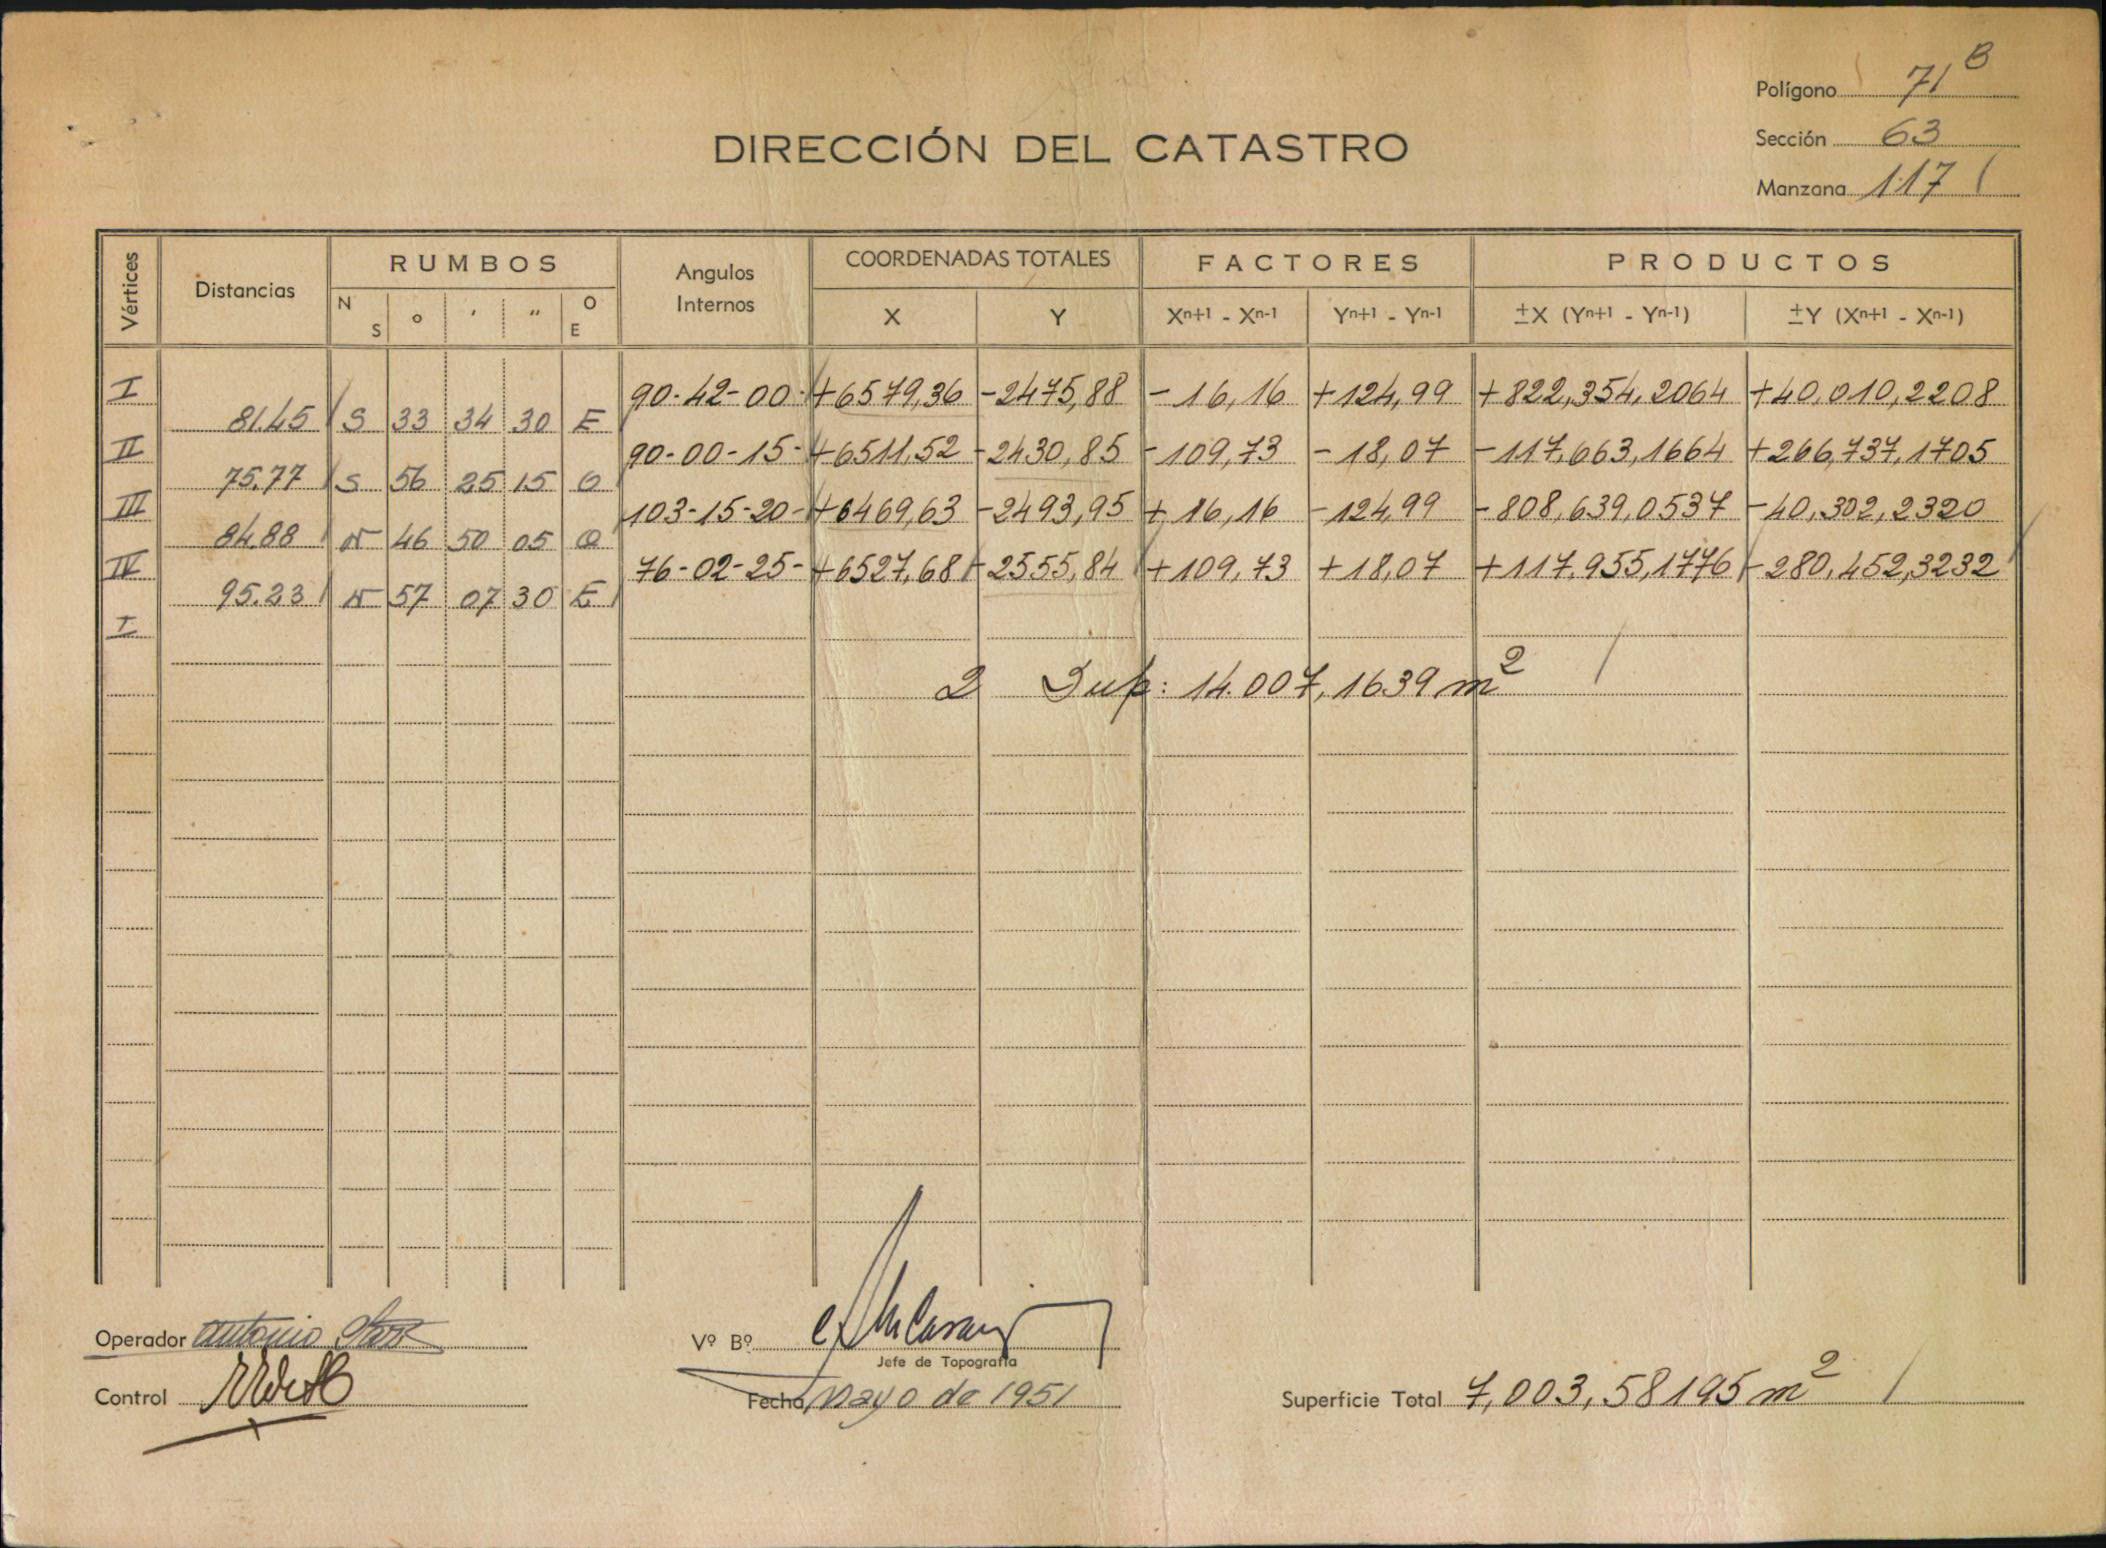 Polígono 71 B
Sección 63
Manzana 117
DIRECCIÓN DEL CATASTRO
Vértices Distancias RUMBOS Angulos Internos COORDENADAS TOTALES FACTORES PRODUCTOS
N S ° ' " O E X Y Xn+1 - Xn-1 Yn+1 - Yn-1 ±X (Yn+1 - Yn-1) ±Y (Xn+1 - Xn-1)
I 90-42-00- +6579,36 -2475,88 -16,16 +124,99 +822,354,2064 +40,010,2208
81.45 S 33 34 30 E
II 90-00-15- +6511,52 -2430,85 -109,73 -18,07 -117,663,1664 +266,737,1705
75.77 S 56 25 15 O
III 103-15-20- +6469,63 -2493,95 +16,16 -124,99 -808,639,0537 -40,302,2320
84.88 N 46 50 05 O
IV 76-02-25- +6527,68 -2555,84 +109,73 +18,07 +117.955,1776 -280.452,3232
95.23 N 57 07 30 E
I
2 Sup: 14.007,1639 m²
Operador Antonio
Vº Bº
Jefe de Topografía
Control
Fecha Mayo de 1951
Superficie Total 7,003,58195 m²